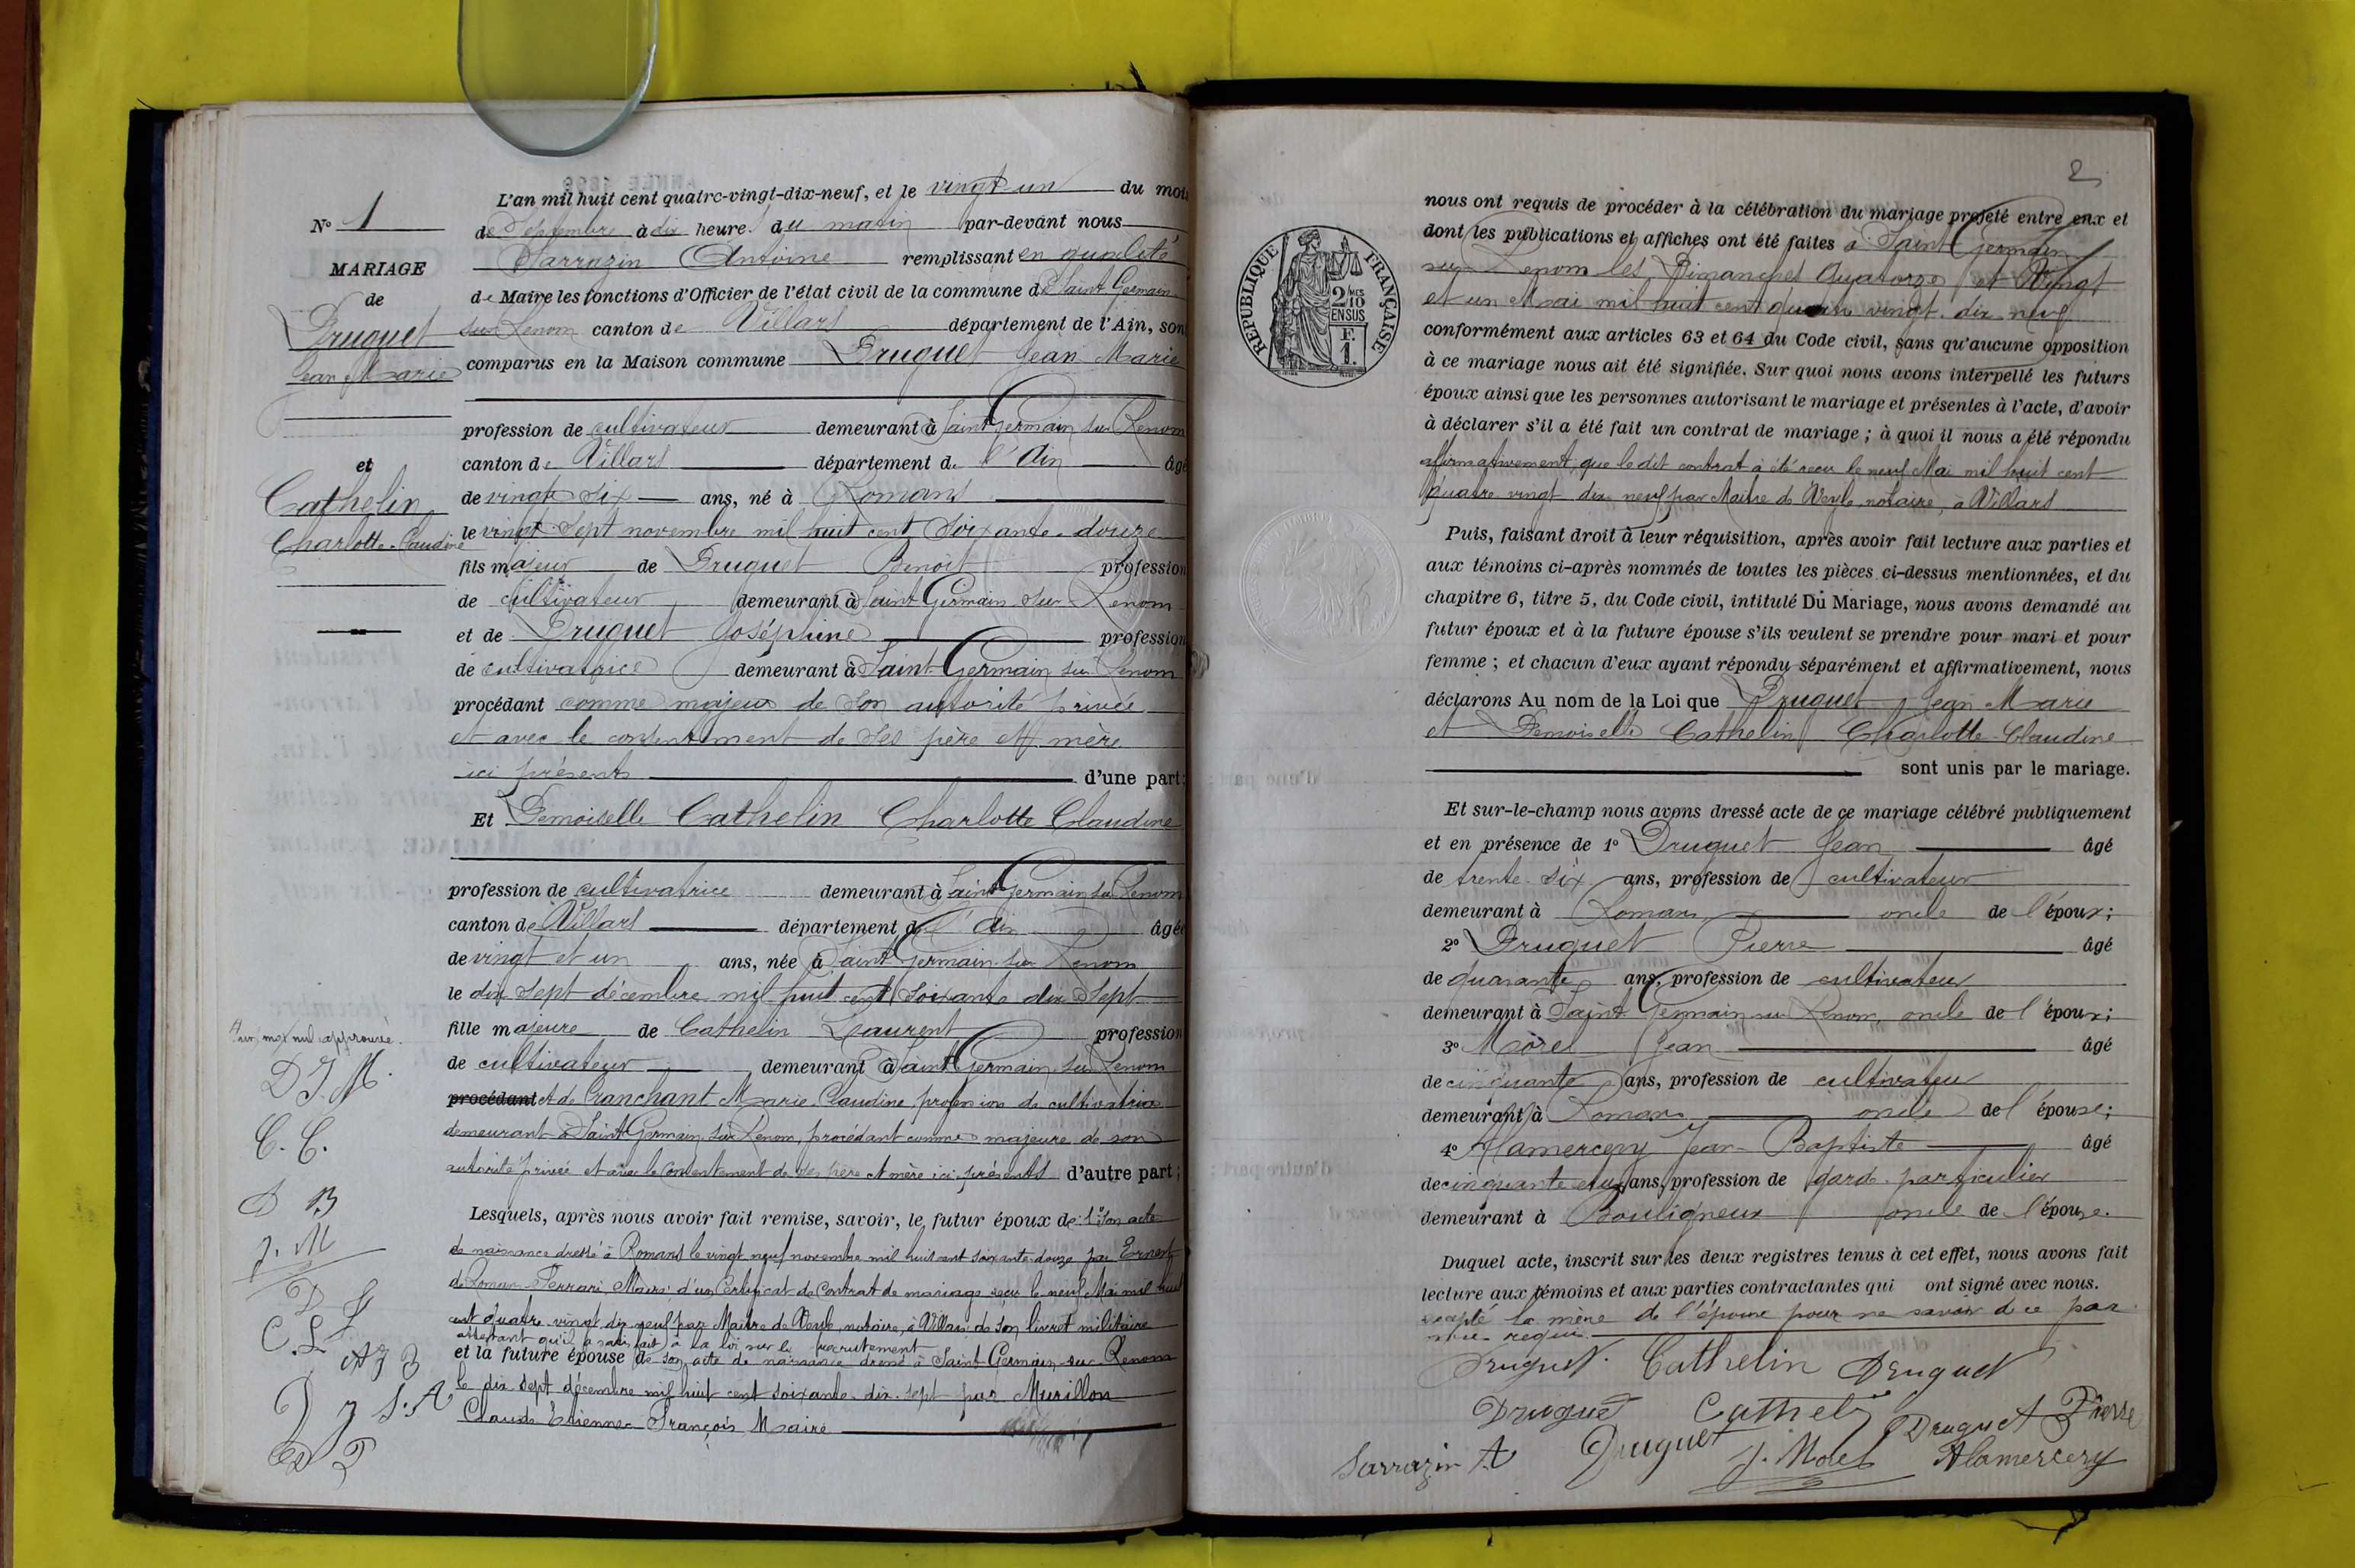 N° 1
MARIAGE
de
Druguet
Jean Marie
et
Cathelin
Charlotte-Claudine
L'an mil huit cent quatre-vingt-dix-neuf, et le vingt un du mois
de Septembre à dix heures du matin par-devant nous
Sarrazin Antoine remplissant en qualité
de Maire les fonctions d'Officier de l'état civil de la commune de Saint Germain
sur Renom canton de Villars département de l'Ain, sont
comparus en la Maison commune Druguet Jean Marie
profession de cultivateur demeurant à Saint Germain sur Renom
canton de Villars département de l'Ain âgé
de vingt six ans, né à Romans
le vingt sept novembre mil huit cent Soixante-douze
fils majeur de Druguet Benoît profession
de cultivateur demeurant à Saint Germain sur Renom
et de Druguet Joséphine profession
de cultivatrice demeurant à Saint Germain sur Renom
procédant comme majeur de son autorité privée
et avec le consentement de ses père et mère
ici présents d'une part;
Et Demoiselle Cathelin Charlotte Claudine
profession de cultivatrice demeurant à Saint Germain sur Renom
canton de Villars département de l'Ain âgée
de vingt et un ans, née à Saint Germain sur Renom
le dix sept décembre mil huit cent soixante dix Sept
fille majeure de Cathelin Laurent profession
de cultivateur demeurant à Saint Germain sur Renom
procédant et de Tranchant Marie Claudine, profession de cultivatrice
demeurant à Saint Germain sur Renom, procédant comme majeure de son
autorité privée et avec le consentement de ses père et mère ici présents d'autre part;
mot nul approuvé.
D J M.
C. C.
D B
J. M
D J
C. L
A J B
D J S. A
D P
Lesquels, après nous avoir fait remise, savoir, le futur époux de 1° son acte
de naissance dressé à Romans le vingt neuf novembre mil huit cent soixante-douze par Ernest
de Ferrari Maire d'un Certificat de Contrat de mariage reçu le neuf Mai mil huit
cent quatre-vingt dix neuf par Maitre de Veyle, notaire, à Villars de son livret militaire
attestant qu'il a satisfait à la loi sur le recrutement
et la future épouse de son acte de naissance dressé à Saint Germain-sur-Renom
le dix sept décembre mil huit cent soixante-dix-sept par Murillon
Claude Etienne François Maire
2
RÉPUBLIQUE FRANÇAISE
2/10 MES
EN SUS
F.
1.
nous ont requis de procéder à la célébration du mariage projeté entre eux et
dont les publications et affiches ont été faites à Saint Germain
sur Renom les Dimanches Quatorze et Vingt
et un Mai mil huit cent quatre vingt-dix-neuf
conformément aux articles 63 et 64 du Code civil, sans qu'aucune opposition
à ce mariage nous ait été signifiée. Sur quoi nous avons interpellé les futurs
époux ainsi que les personnes autorisant le mariage et présentes à l'acte, d'avoir
à déclarer s'il a été fait un contrat de mariage; à quoi il nous a été répondu
affirmativement, que le dit contrat à été reçu le neuf Mai mil huit cent
quatre vingt dix neuf par Maitre de Veyle notaire, à Villars
Puis, faisant droit à leur réquisition, après avoir fait lecture aux parties et
aux témoins ci-après nommés de toutes les pièces ci-dessus mentionnées, et du
chapitre 6, titre 5, du Code civil, intitulé Du Mariage, nous avons demandé au
futur époux et à la future épouse s'ils veulent se prendre pour mari et pour
femme; et chacun d'eux ayant répondu séparément et affirmativement, nous
déclarons Au nom de la Loi que Druguet Jean Marie
et Demoiselle Cathelin Charlotte-Claudine
sont unis par le mariage.
Et sur-le-champ nous avons dressé acte de ce mariage célébré publiquement
et en présence de 1° Druguet Jean âgé
de trente-six ans, profession de cultivateur
demeurant à Romans oncle de l'époux;
2° Druguet Pierre âgé
de quarante ans, profession de cultivateur
demeurant à Saint Germain sur Renom, oncle de l'époux;
3° Morel Jean âgé
de cinquante ans, profession de cultivateur
demeurant à Romans oncle de l'épouse;
4° Alamercery Jean-Baptiste âgé
de cinquante et un ans, profession de garde-particulier
demeurant à Bouligneux oncle de l'épouse.
Duquel acte, inscrit sur les deux registres tenus à cet effet, nous avons fait
lecture aux témoins et aux parties contractantes qui ont signé avec nous.
excepté la mère de l'épouse pour ne savoir de ce par
nous requis.
Druguet. Cathelin Druguet
Druguet Cathelin Druguet Pierre
Sarrazin A Druguet J. Morel Alamercery